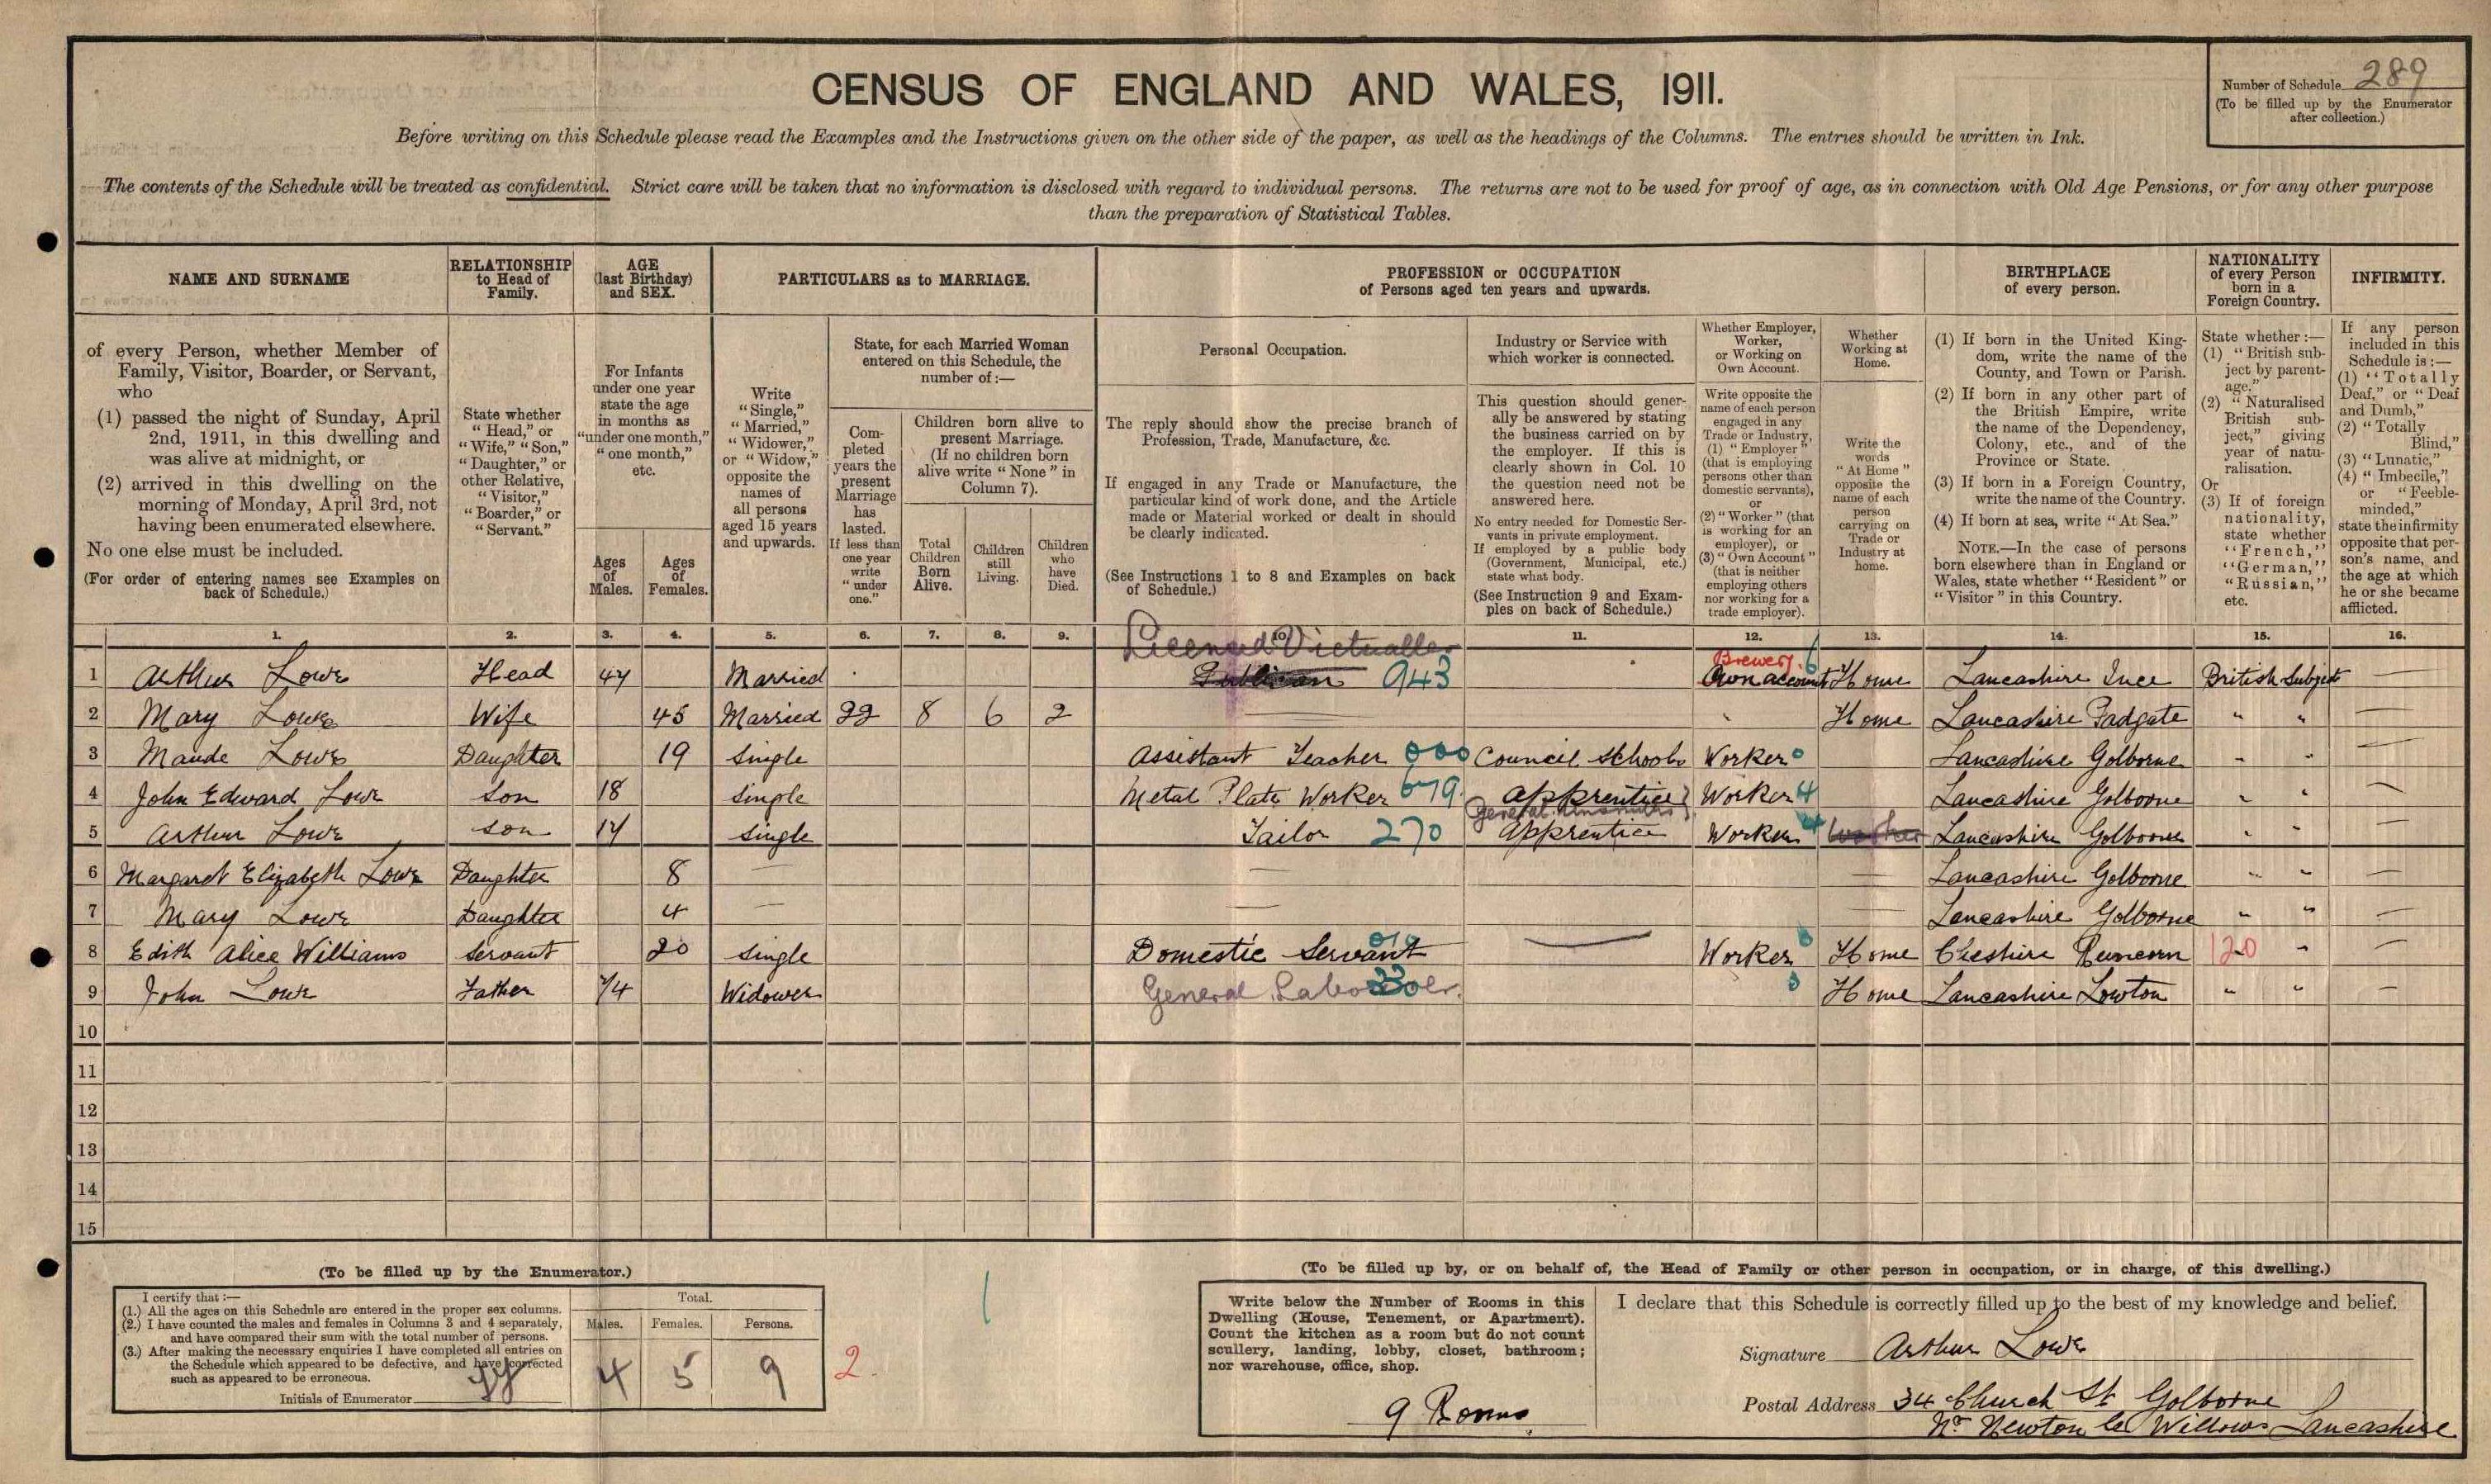 CENSUS OF ENGLAND AND WALES, 1911.
Number of Schedule 289
(To be filled up by the Enumerator after collection.)
Before writing on this Schedule please read the Examples and the Instructions given on the other side of the paper, as well as the headings of the Columns. The entries should be written in Ink.
The contents of the Schedule will be treated as confidential. Strict care will be taken that no information is disclosed with regard to individual persons. The returns are not to be used for proof of age, as in connection with Old Age Pensions, or for any other purpose
than the preparation of Statistical Tables.
NAME AND SURNAME
of every Person, whether Member of
Family, Visitor, Boarder, or Servant,
who
(1) passed the night of Sunday, April
2nd, 1911, in this dwelling and
was alive at midnight, or
(2) arrived in this dwelling on the
morning of Monday, April 3rd, not
having been enumerated elsewhere.
No one else must be included.
(For order of entering names see Examples on
back of Schedule.)
RELATIONSHIP
to Head of
Family.
State whether
"Head," or
"Wife," "Son,"
"Daughter," or
other Relative,
"Visitor,"
"Boarder," or
"Servant."
AGE
(last Birthday)
and SEX.
For Infants
under one year
state the age
in months as
"under one month,"
"one month,"
etc.
Ages
of
Males.
Ages
of
Females.
PARTICULARS as to MARRIAGE.
Write
"Single,"
"Married,"
"Widower,"
or "Widow,"
opposite the
names of
all persons
aged 15 years
and upwards.
State, for each Married Woman
entered on this Schedule, the
number of:—
Com-
pleted
years the
present
Marriage
has
lasted.
If less than
one year
write
"under
one."
Children born alive to
present Marriage.
(If no children born
alive write "None" in
Column 7).
Total
Children
Born
Alive.
Children
still
Living.
Children
who
have
Died.
PROFESSION or OCCUPATION
of Persons aged ten years and upwards.
Personal Occupation.
The reply should show the precise branch of
Profession, Trade, Manufacture, &c.
If engaged in any Trade or Manufacture, the
particular kind of work done, and the Article
made or Material worked or dealt in should
be clearly indicated.
(See Instructions 1 to 8 and Examples on back
of Schedule.)
Industry or Service with
which worker is connected.
This question should gener-
ally be answered by stating
the business carried on by
the employer. If this is
clearly shown in Col. 10
the question need not be
answered here.
No entry needed for Domestic Ser-
vants in private employment.
If employed by a public body
(Government, Municipal, etc.)
state what body.
(See Instruction 9 and Exam-
ples on back of Schedule.)
Whether Employer,
Worker,
or Working on
Own Account.
Write opposite the
name of each person
engaged in any
Trade or Industry,
(1) "Employer"
(that is employing
persons other than
domestic servants),
or
(2) "Worker" (that
is working for an
employer), or
(3) "Own Account"
(that is neither
employing others
nor working for a
trade employer).
Whether
Working at
Home.
Write the
words
"At Home"
opposite the
name of each
person
carrying on
Trade or
Industry at
home.
BIRTHPLACE
of every person.
(1) If born in the United King-
dom, write the name of the
County, and Town or Parish.
(2) If born in any other part of
the British Empire, write
the name of the Dependency,
Colony, etc., and of the
Province or State.
(3) If born in a Foreign Country,
write the name of the Country.
(4) If born at sea, write "At Sea."
NOTE.—In the case of persons
born elsewhere than in England or
Wales, state whether "Resident" or
"Visitor" in this Country.
NATIONALITY
of every Person
born in a
Foreign Country.
State whether:—
(1) "British sub-
ject by parent-
age."
(2) "Naturalised
British sub-
ject," giving
year of natu-
ralisation.
Or
(3) If of foreign
nationality,
state whether
"French,"
"German,"
"Russian,"
etc.
INFIRMITY.
If any person
included in this
Schedule is:—
(1) "Totally
Deaf," or "Deaf
and Dumb,"
(2) "Totally
Blind,"
(3) "Lunatic,"
(4) "Imbecile,"
or "Feeble-
minded,"
state the infirmity
opposite that per-
son's name, and
the age at which
he or she became
afflicted.
1. 2. 3. 4. 5. 6. 7. 8. 9. 10. 11. 12. 13. 14. 15. 16.
Licensed Victualler
Brewery. 6
1 Arthur Lowe Head 44 Married Publican 943 Own account Home Lancashire Ince British Subject —
2 Mary Lowe Wife 45 Married 22 8 6 2 — Home Lancashire Padgate " " —
3 Maude Lowe Daughter 19 Single Assistant Teacher 000 Council Schools Worker 0 Lancashire Golborne " " —
4 John Edward Lowe Son 18 Single Metal Plate Worker 679 Apprentice Worker 4 Lancashire Golborne " " —
General
5 Arthur Lowe Son 14 Single Tailor 270 Apprentice Worker 4 Lancashire Golborne " " —
6 Margaret Elizabeth Lowe Daughter 8 — — — Lancashire Golborne " " —
7 Mary Lowe Daughter 4 — — — Lancashire Golborne " " —
8 Edith Alice Williams Servant 20 Single Domestic Servant 010 — Worker Home Cheshire Runcorn 120 " —
9 John Lowe Father 74 Widower General Labourer Home Lancashire Lowton " " —
10
11
12
13
14
15
(To be filled up by the Enumerator.)
I certify that:—
(1.) All the ages on this Schedule are entered in the proper sex columns.
(2.) I have counted the males and females in Columns 3 and 4 separately,
and have compared their sum with the total number of persons.
(3.) After making the necessary enquiries I have completed all entries on
the Schedule which appeared to be defective, and have corrected
such as appeared to be erroneous.
Initials of Enumerator
Total.
Males. Females. Persons.
4 5 9 2.
(To be filled up by, or on behalf of, the Head of Family or other person in occupation, or in charge, of this dwelling.)
Write below the Number of Rooms in this
Dwelling (House, Tenement, or Apartment).
Count the kitchen as a room but do not count
scullery, landing, lobby, closet, bathroom;
nor warehouse, office, shop.
9 Rooms
I declare that this Schedule is correctly filled up to the best of my knowledge and belief.
Signature Arthur Lowe
Postal Address 34 Church St Golborne
Nr Newton le Willows Lancashire